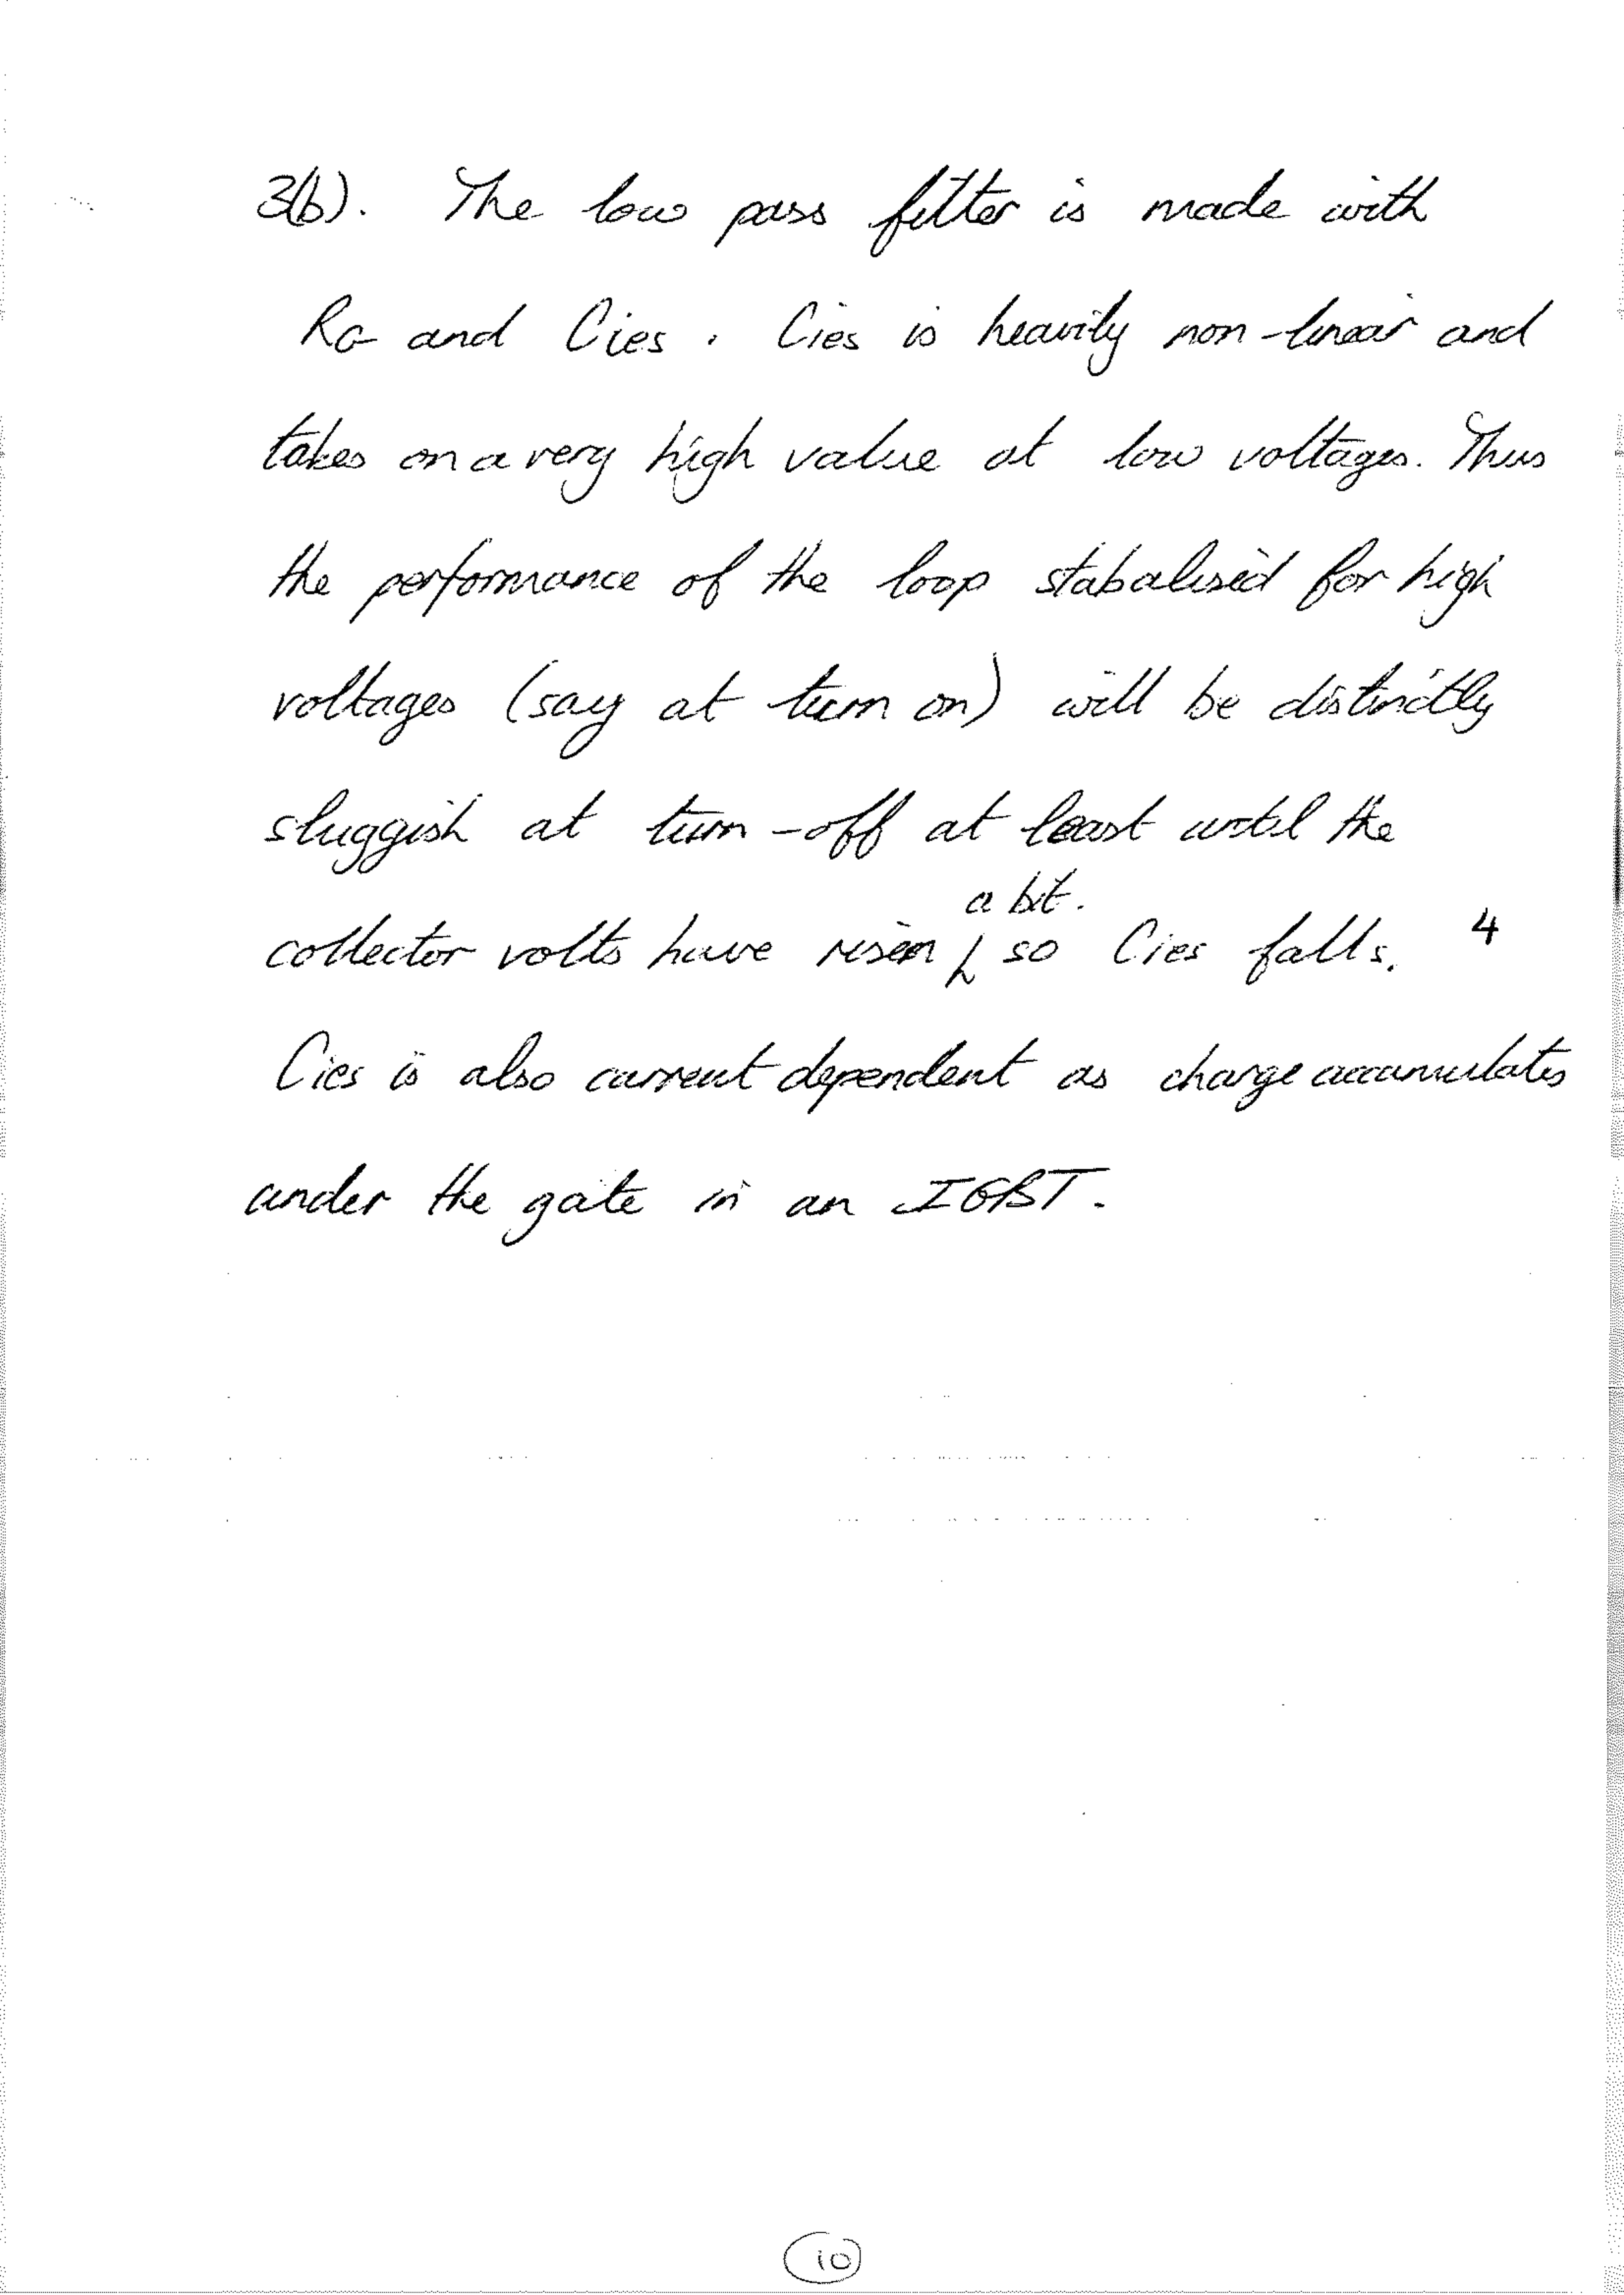 3(b). The low pass filter is made with
RG and Cies. Cies is heavily non-linear and
takes on a very high value at low voltages. Thus
the performance of the loop stabalised for high
voltages (say at turn on) will be distinctly
sluggish at turn-off at least until the
a bit.
collector volts have risen so Cies falls. 4
Cies is also current dependent as charge accumulates
under the gate in an IGBT.
10